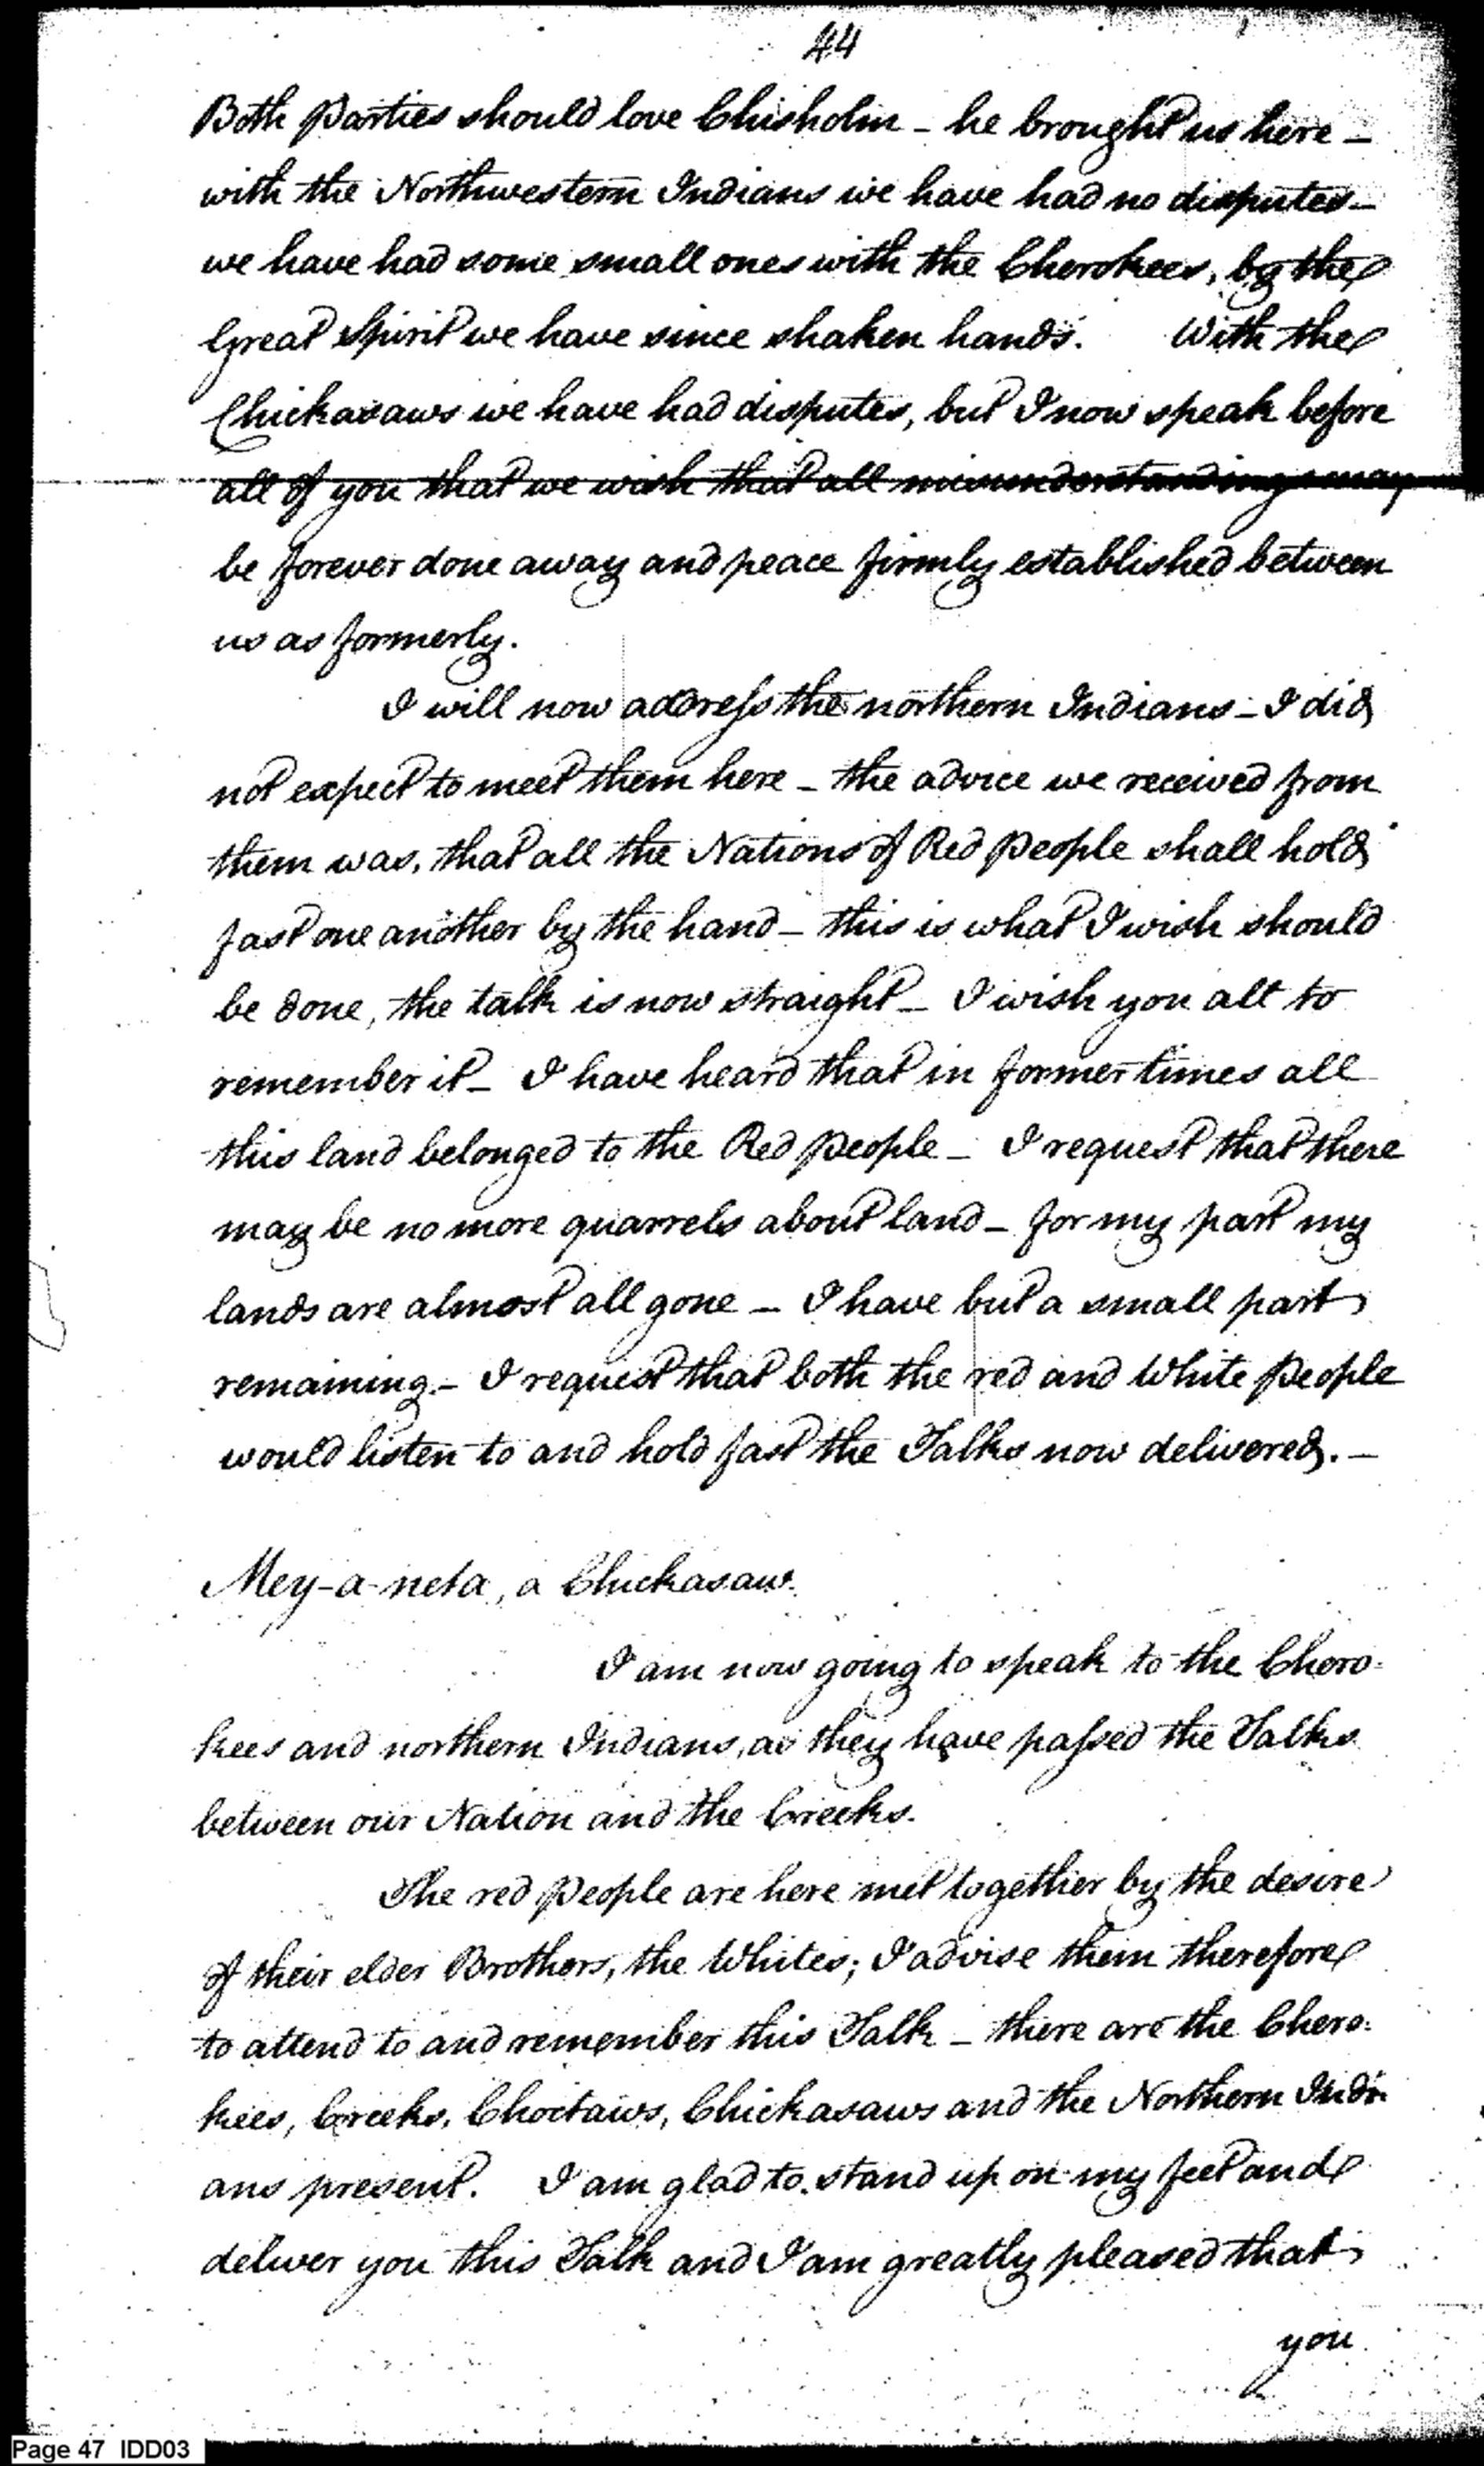 44
Both Parties should love Chisholm - he brought us here -
with the Northwestern Indians we have had no disputes -
we have had some small ones with the Cherokees, by the
Great Spirit we have since shaken hands. With the
Chickasaws we have had disputes, but I now speak before
all of you that we wish that all misunderstandings may
be forever done away and peace firmly established between
us as formerly.
I will now address the northern Indians - I did
not expect to meet them here - the advice we received from
them was, that all the Nations of Red People shall hold
fast one another by the hand - this is what I wish should
be done, the talk is now straight - I wish you all to
remember it - I have heard that in former times all
this land belonged to the Red People - I request that there
may be no more quarrels about land - for my part my
lands are almost all gone - I have but a small part
remaining - I request that both the red and White People
would listen to and hold fast the Talks now delivered. -
Mey-a-neta, a Chickasaw.
I am now going to speak to the Chero=
kees and northern Indians, as they have passed the Talks
between our Nation and the Creeks.
The red People are here met together by the desire
of their elder Brothers, the Whites; I advise them therefore
to attend to and remember this Talk - there are the Chero=
kees, Creeks, Choctaws, Chickasaws and the Northern Indi=
ans present. I am glad to stand up on my feet and
deliver you this Talk and I am greatly pleased that
you
Page 47 IDD03